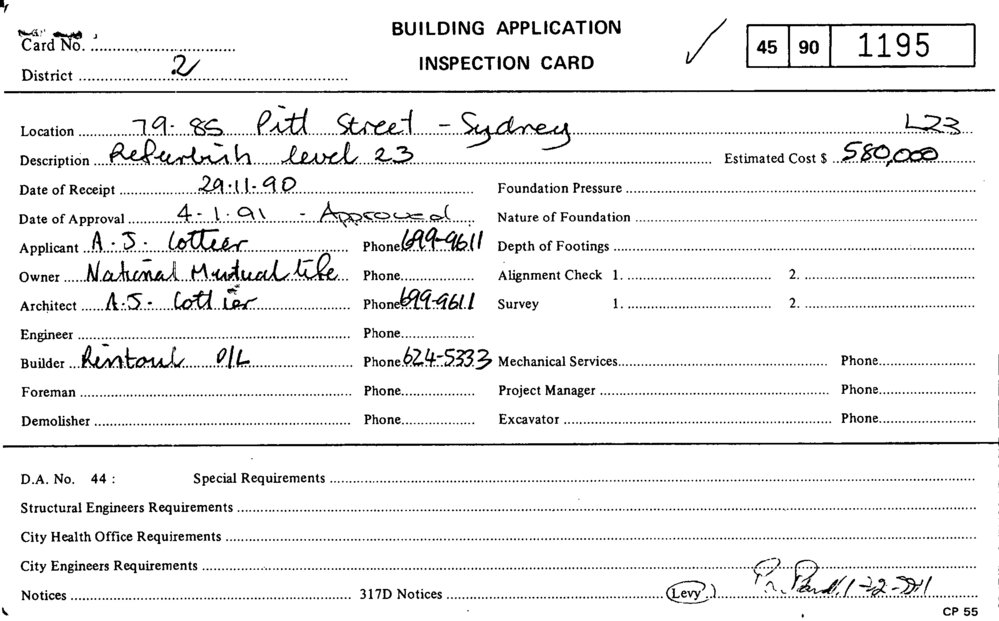 BUILDING APPLICATION
INSPECTION CARD
Card No.
District 2
45 90 1195
Location 79-85 Pitt Street - Sydney L23
Description Refurbish level 23 Estimated Cost $ 580,000
Date of Receipt 29.11.90 Foundation Pressure
Date of Approval 4.1.91 - Approved Nature of Foundation
Applicant A.J. Cottier Phone 699-9611 Depth of Footings
Owner National Mutual Life Phone Alignment Check 1. 2.
Architect A.J. Cottier Phone 699-9611 Survey 1. 2.
Engineer Phone
Builder Rintoul P/L Phone 624-5333 Mechanical Services Phone
Foreman Phone Project Manager Phone
Demolisher Phone Excavator Phone
D.A. No. 44 : Special Requirements
Structural Engineers Requirements
City Health Office Requirements
City Engineers Requirements
Notices 317D Notices Levy
CP 55